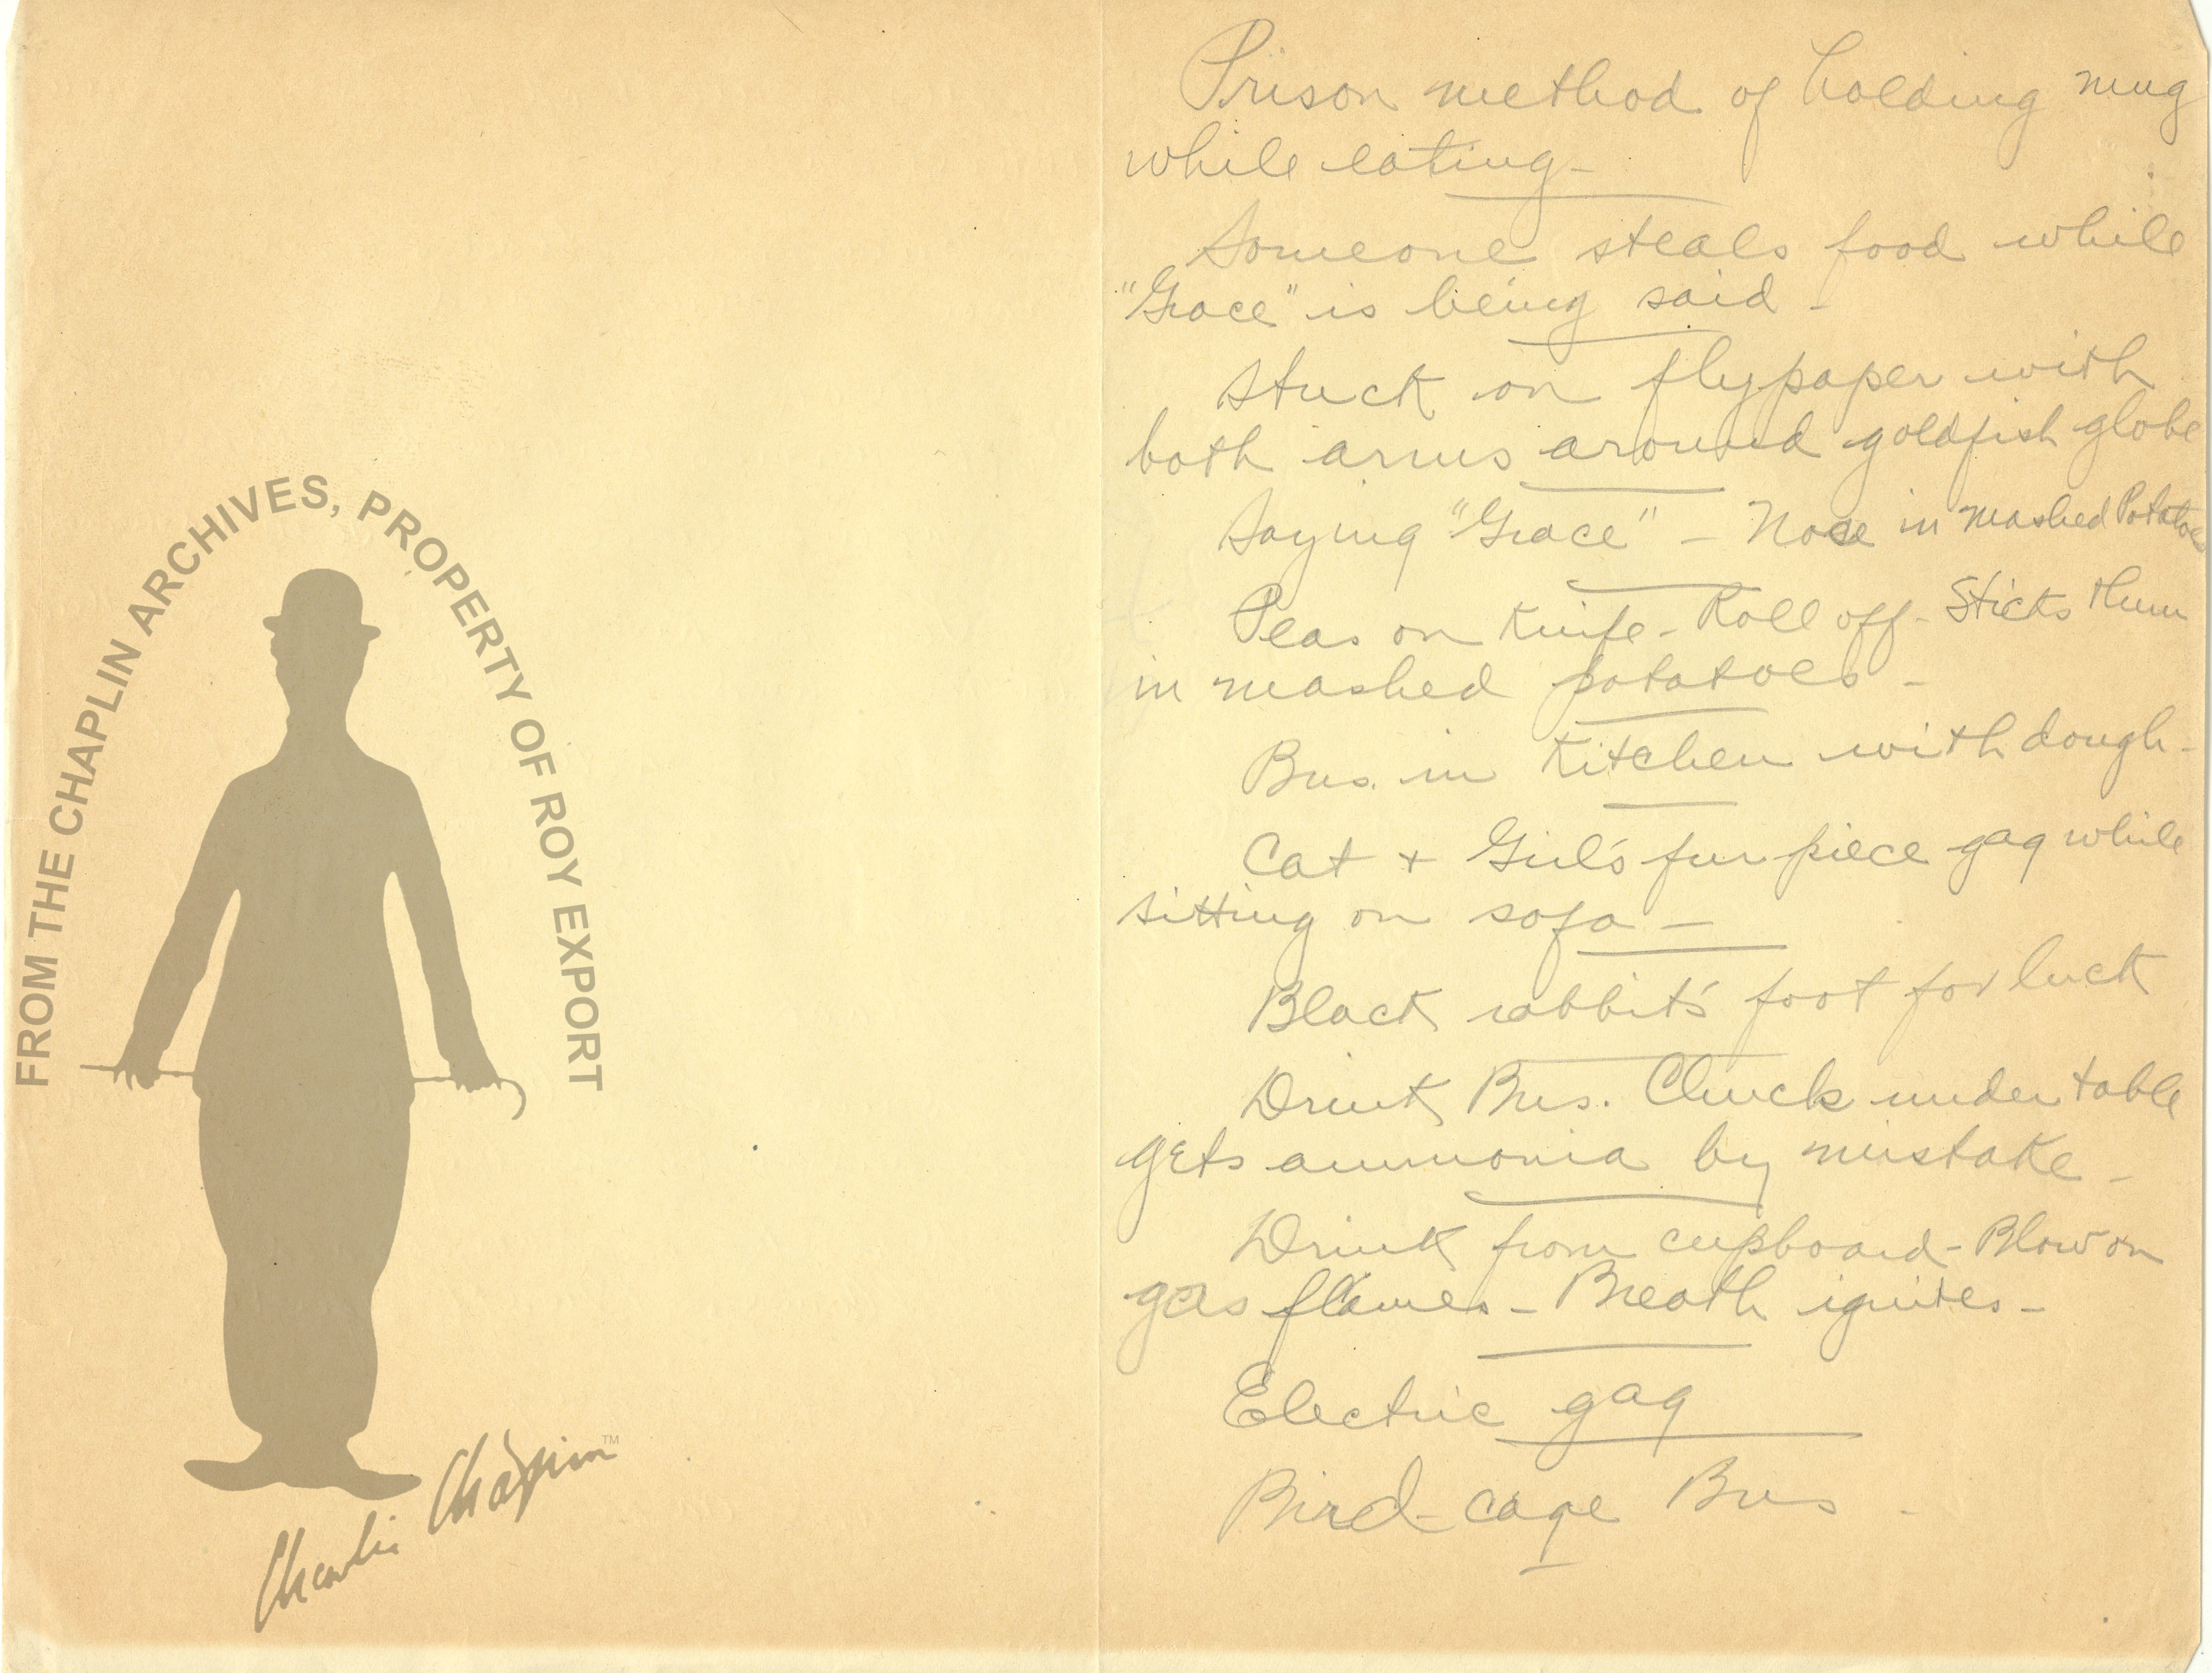 FROM THE CHAPLIN ARCHIVES, PROPERTY OF ROY EXPORT
Charlie Chaplin™
Prison method of holding mug
while eating -
Someone steals food while
"Grace" is being said -
Stuck on flypaper with
both arms around goldfish globe
Saying "Grace" - Nose in mashed Potatoes
Peas on Knife - Roll off - Sticks them
in mashed potatoes -
Bus. in Kitchen with dough -
Cat + Girl's fur piece gag while
sitting on sofa -
Black rabbit's foot for luck
Drink Bus. Chuck under table
gets ammonia by mistake -
Drink from cupboard - Blow on
gas flames - Breath ignites -
Electric gag
Bird-cage Bus -